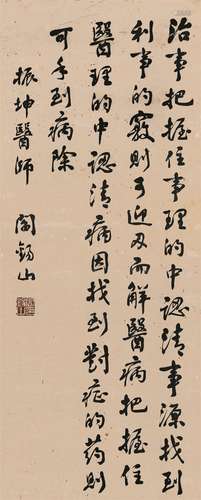 治事把握住事理的中認清事源找到
利事的竅則可迎刃而解醫病把握住
醫理的中認清病因找到對症的药則
可手到病除
振坤醫師
閻錫山